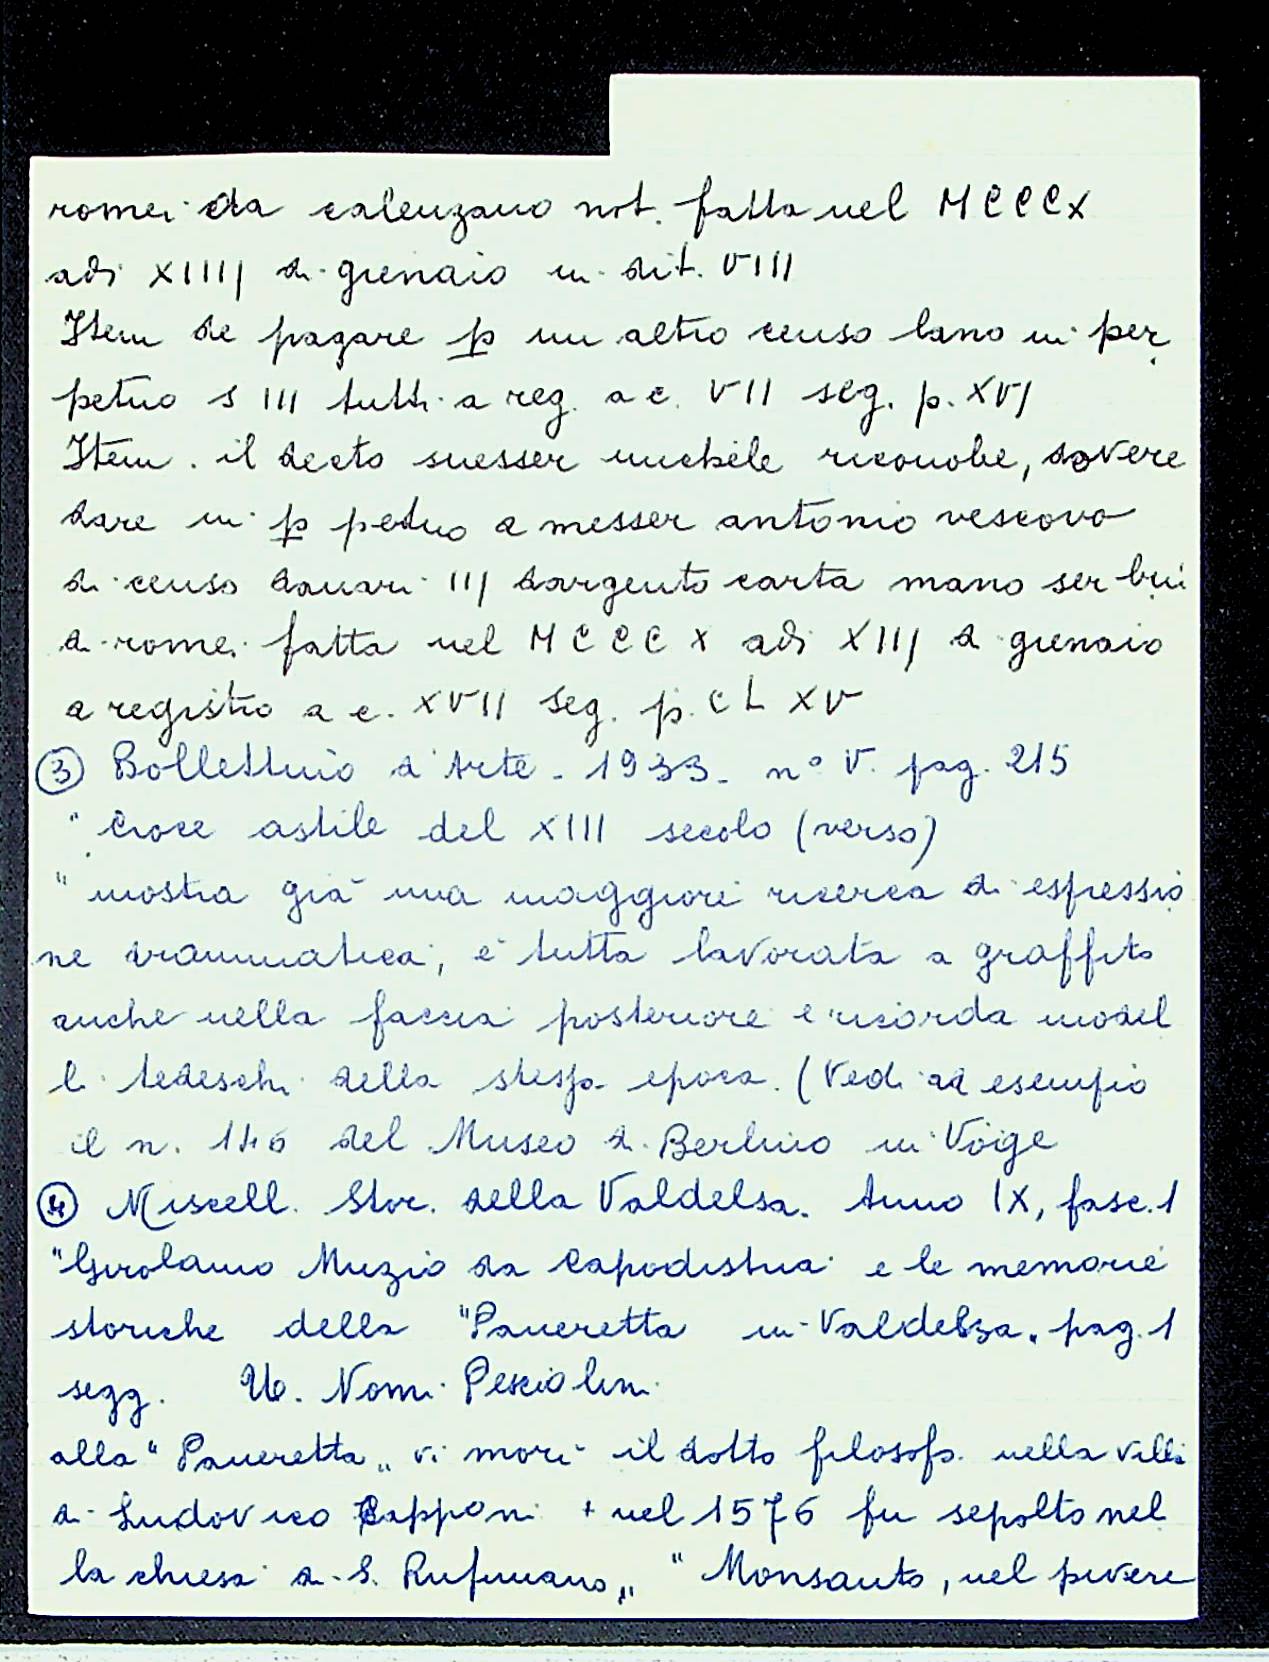 romei da calenzano not. fatta nel MCCCX
adi XIIIJ di giennaio in dit. VIII
Item de pagare p un altro censo lano in per
petuo s III tutti a reg. a c. VII seg. p. XVJ
Item . il decto messer michele riconobe, dovere
dare in p petuo a messer antonio vescovo
di censo danari IIJ dargento carta mano ser
di romei fatta nel MCCCX adi XIIJ di giennaio
a registro a c. XVII seg. p. CLXV
③ Bollettino d'Arte - 1933 - n° V. pag. 215
" Croce astile del XIII secolo (verso)
" mostra già una maggiore ricerca di espressio
ne drammatica; è tutta lavorata a graffito
anche nella faccia posteriore e ricorda model
li tedeschi della stessa epoca. (Vedi ad esempio
il n. 146 del Museo di Berlino in Vöge
④ Miscell. Stor. della Valdelsa. Anno IX, fasc. 1
"Girolamo Muzio da Capodistria e le memorie
storiche della "Paneretta in Valdelsa„ pag. 1
segg. U. Nomi Pesciolini
alla "Paneretta„ vi morì il dotto filosofo nella villa
di Ludovico Capponi + nel 1576 fu sepolto nel
la chiesa di S. Rufiniano„ "Monsanto, nel pivere